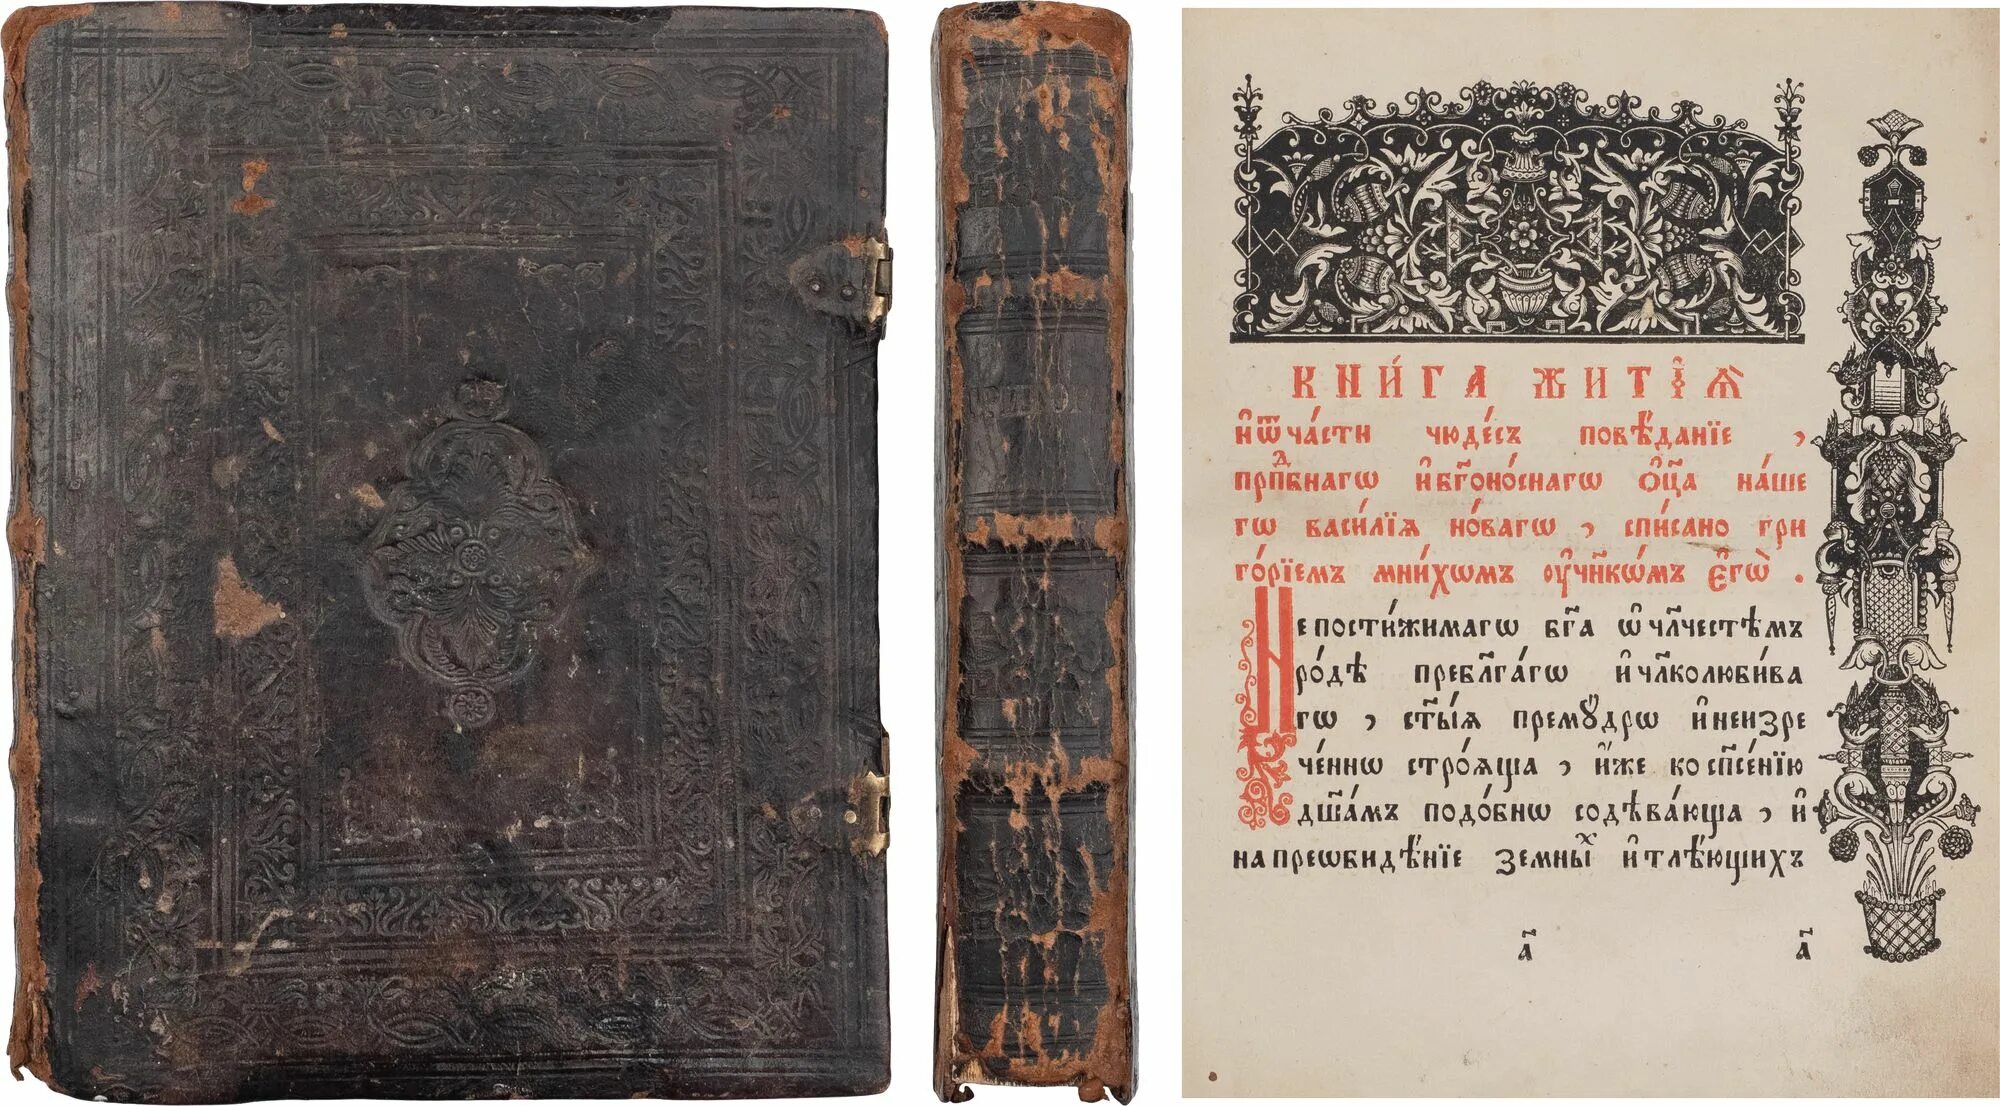 КНИ́ГА ЖИТІѦ̀
и҆ѿча́сти чюде́съ повѣ́данїе ,
прпⷣбнагѡ и҆бг҃оно́снагѡ ѻ҆ц҃а на́ше
гѡ васи́лїѧ но́вагѡ , спи́сано гри
го́рїемъ мни́хѡмъ ᲂу҆чн҃кѡ́мъ є҆гѡ̀ .
Непости́жимагѡ бг҃а ѡ҆чл҃честѣмъ
ро́дѣ пребл҃га́гѡ и҆чл҃колюби́ва
гѡ , ст҃ы́ѧ премꙋ́дрѡ и҆неизре
че́ннѡ строѧ́ща , и҆́же ко сп҃се́нїю
дш҃а́мъ подо́бнѡ содѣва́юща , и҆
на преѡбидѣ́нїе земны́хⷯ и҆тлѣ́ющихъ
а҃ а҃